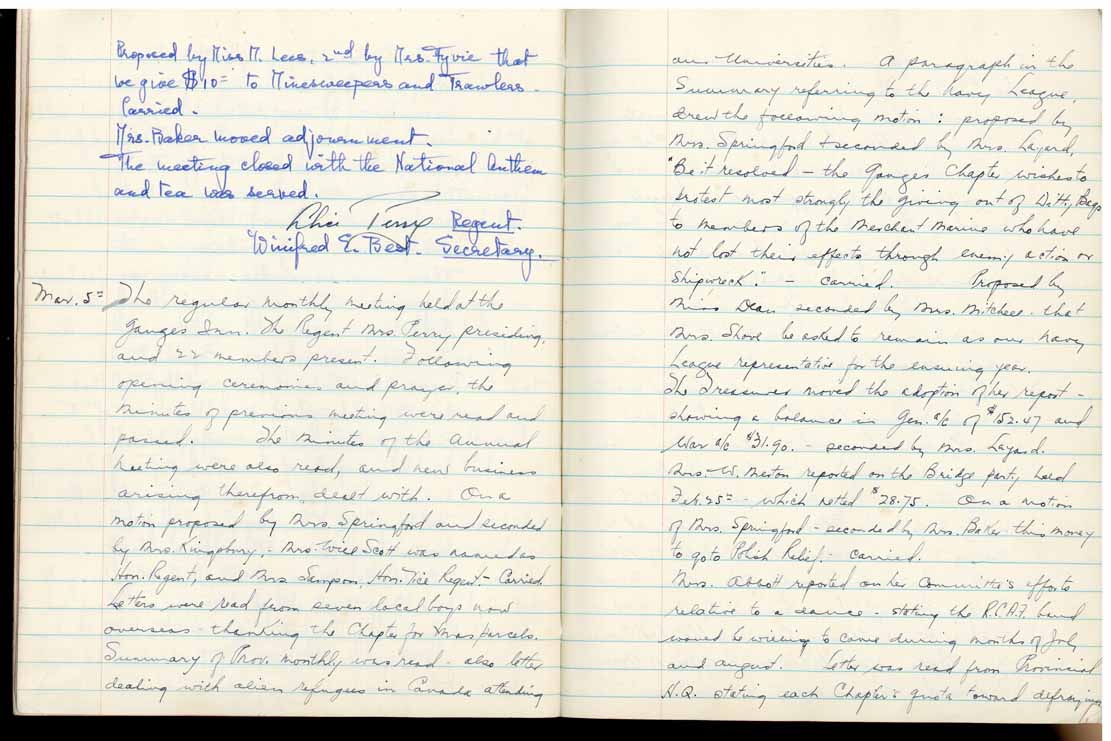 Proposed by Miss M. Lees, 2nd by Mrs. Fyvie that
we give $10= to Minesweepers and Trawlers.
Carried.
Mrs. Baker moved adjournment.
The meeting closed with the National Anthem
and tea was served.
Regent.
Winifred E. Best. Secretary.
Mar. 5= The regular monthly meeting held at the
Ganges Inn. The Regent Mrs. Perry, presiding,
and 22 members present. Following
opening ceremonies and prayer, the
minutes of previous meeting were read and
passed. The minutes of the Annual
meeting were also read, and new business
arising therefrom, dealt with. On a
motion proposed by Mrs Springford and seconded
by Mrs. Kingsbury, - Mrs. Will Scott was named as
Hon. Regent, and Mrs Sampson, Hon. Vice Regent - Carried.
Letters were read from seven local boys now
overseas - thanking the Chapter for Xmas parcels.
Summary of Prov. monthly was read - also letter
dealing with alien refugees in Canada attending
our Universities. A paragraph in the
Summary referring to the Navy League,
drew the following motion: proposed by
Mrs. Springford + seconded by Mrs. Layard,
"Be it resolved - the Ganges Chapter wishes to
protest most strongly the giving out of Ditty Bags
to members of the Merchant Marine who have
not lost their effects through enemy action or
Shipwreck". - carried. Proposed by
Miss Dean seconded by Mrs. Mitchell - that
Mrs. Shove be asked to remain as our Navy
League representative for the ensuing year.
The Treasurer moved the adoption of her report -
showing a balance in Gen. a/c of $152.47 and
War a/c $31.90. - seconded by Mrs. Layard.
Mrs. W. Meston reported on the Bridge party, held
Feb. 25= - which netted $28.75. On a motion
of Mrs. Springford - seconded by Mrs. Baker this money
to go to Polish Relief. - carried.
Mrs. Abbott reported on her Committe's efforts
relative to a dance - stating the R.C.A.F. band
would be willing to come during months of July
and august. Letter was read from Provincial
H.Q. stating each Chapter's quota toward defraying